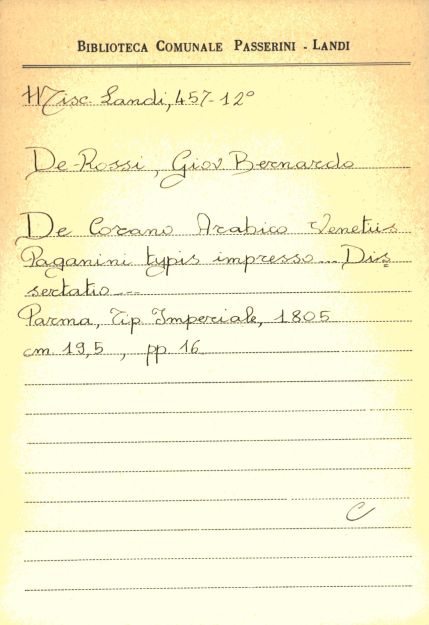 BIBLIOTECA COMUNALE PASSERINI - LANDI
Misc. Landi, 457-12°
De-Rossi, Giov. Bernardo
De Corano Arabico Venetiis
Paganini typis impresso... Dis=
sertatio...
Parma, Tip. Imperiale, 1805
cm. 19,5 , pp. 16.
C